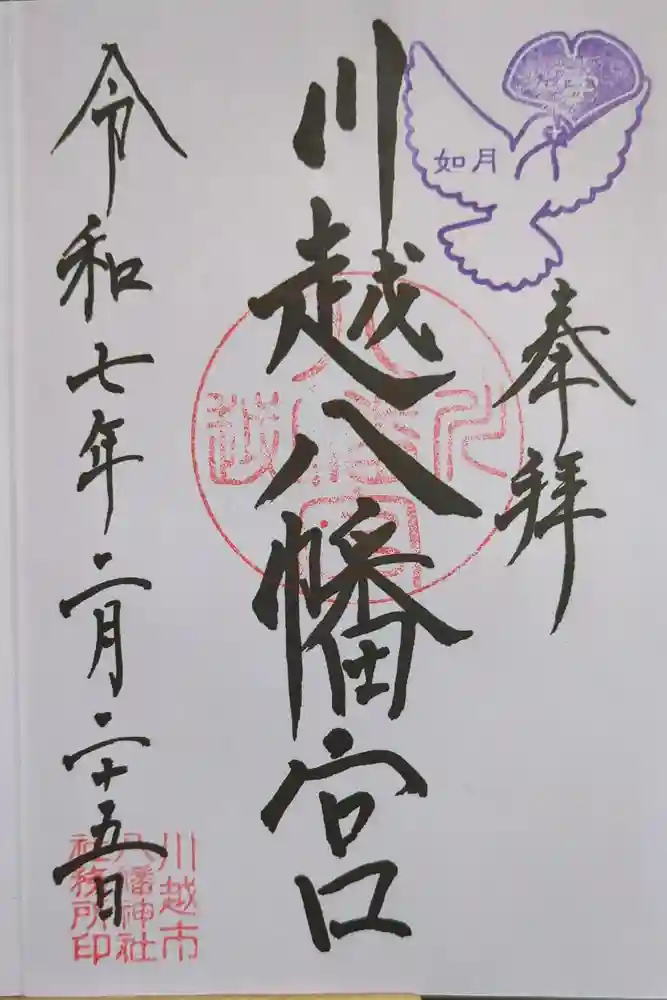 奉拝
如月
川越八幡宮
令和七年二月二十五日
川越市
八幡神社
社務所印